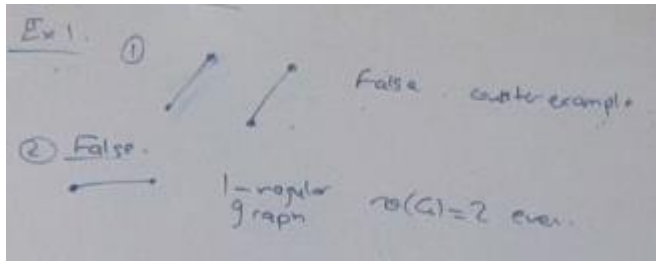 Ex 1.
① False. counterexample
② False.
1-regular
graph
v(G)=2 even.